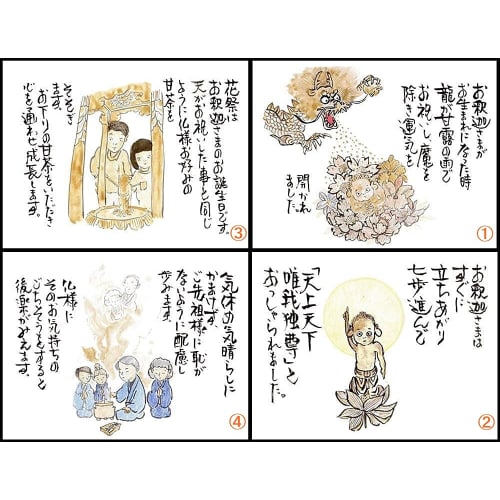 お釈迦さまが
お生まれになった時
龍が甘露の雨で
お祝いし魔を
除き運気を
開かれ
ました。
①
お釈迦さまは
すぐに
立ちあがり
七歩進んで
「天上天下
唯我独尊」と
おっしゃられました。
②
花祭は
お釈迦さまのお誕生日です。
天がお祝いした事と同じ
ように仏様お好みの
甘茶を
そそぎ
ます。
お下りの甘茶をいただき
心を通わせ成長します。
③
気休の気晴らしに
かまけず、
ご先祖様に恥が
ないように配慮し
歩みます。
仏様に
そのお気持ちの
ごちそうをすると
後楽がみえます。
④